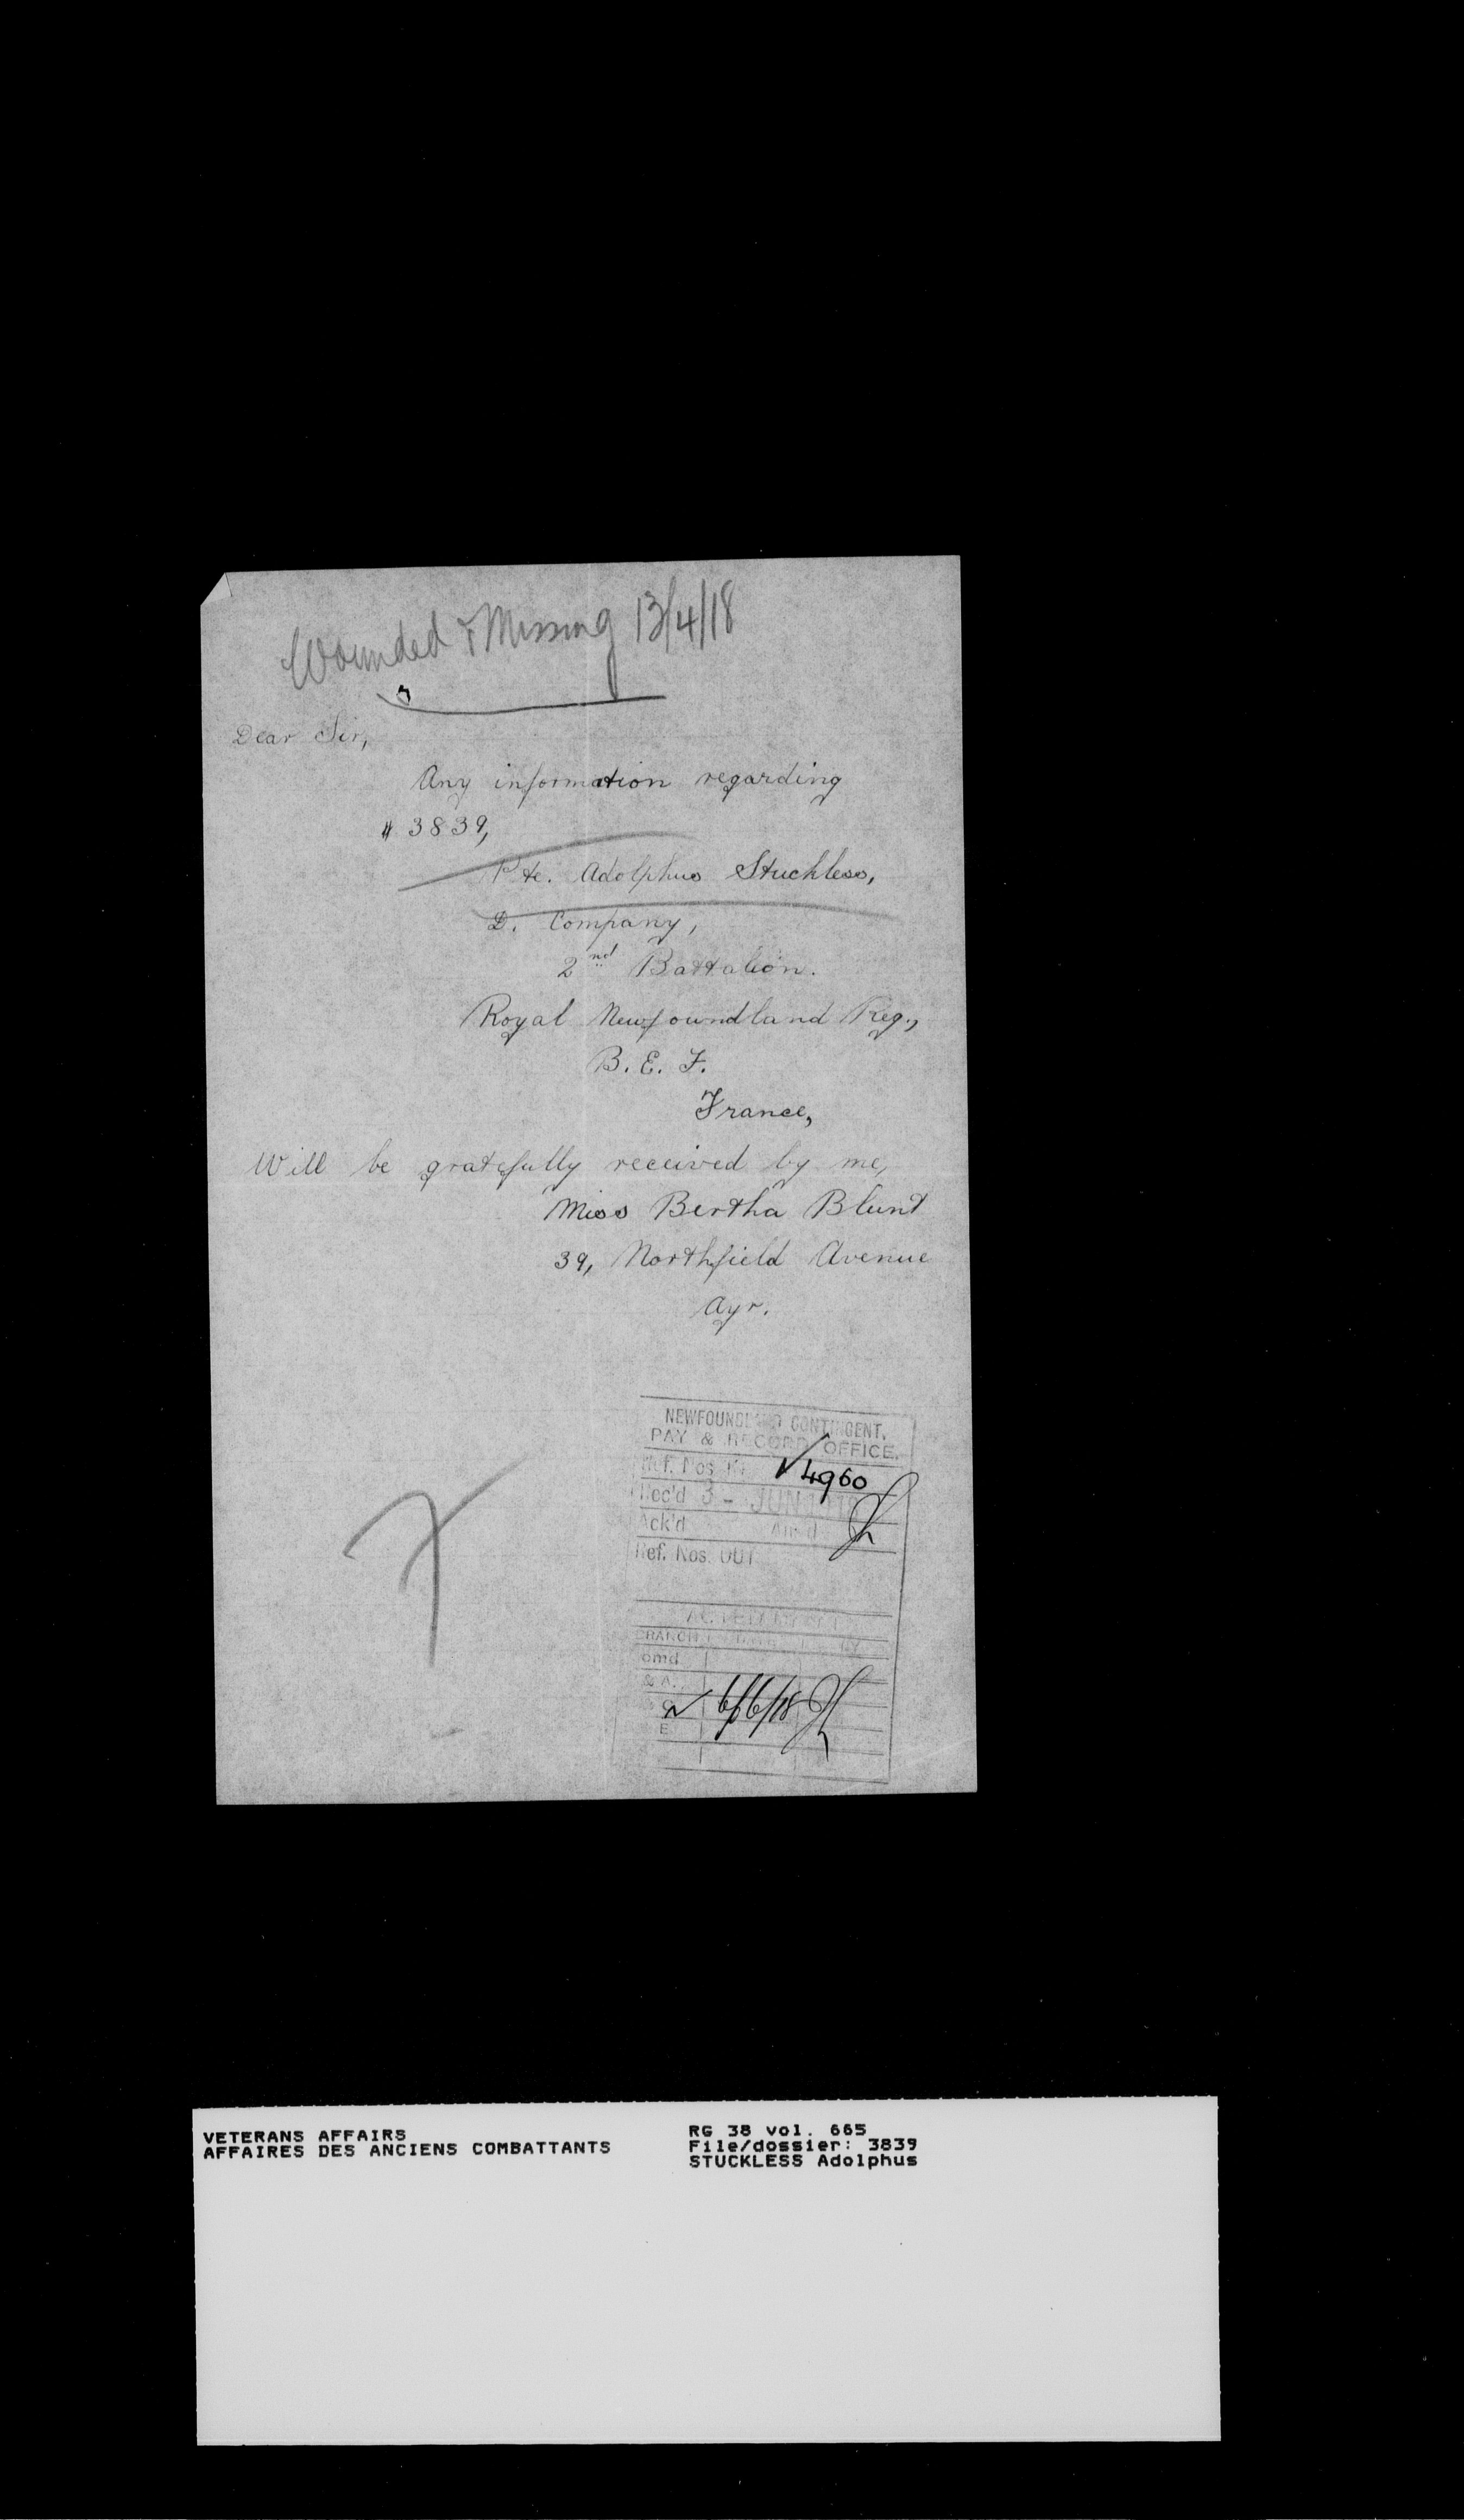 Wounded & Missing 13/4/18
Dear Sir,
Any information regarding
# 3839,
Pte. Adolphus Stuckless,
D. Company,
2nd Battalion.
Royal Newfoundland Reg.,
B. E. F.
France,
Will be gratefully received by me,
Miss Bertha Blunt
39, Northfield Avenue
Ayr.
NEWFOUNDLAND CONTINGENT.
PAY & RECORD OFFICE.
Ref. Nos. IN 4960
Rec'd 3 - JUN 1918
Ack'd
Ref. Nos. OUT
BRANCH
omd
& A.
6/6/18
E
VETERANS AFFAIRS
AFFAIRES DES ANCIENS COMBATTANTS
RG 38 vol. 665
File/dossier: 3839
STUCKLESS Adolphus